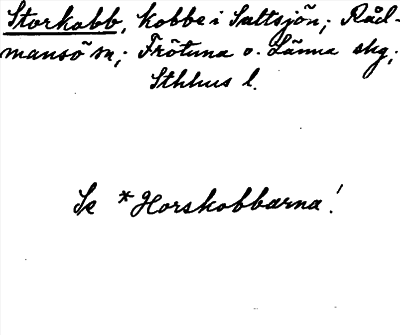 Storkobb, kobbe i Saltsjön; Råd-
mansö sn; Frötuna o. Länna skg;
Sthlms l.
Se *Horskobbarna!